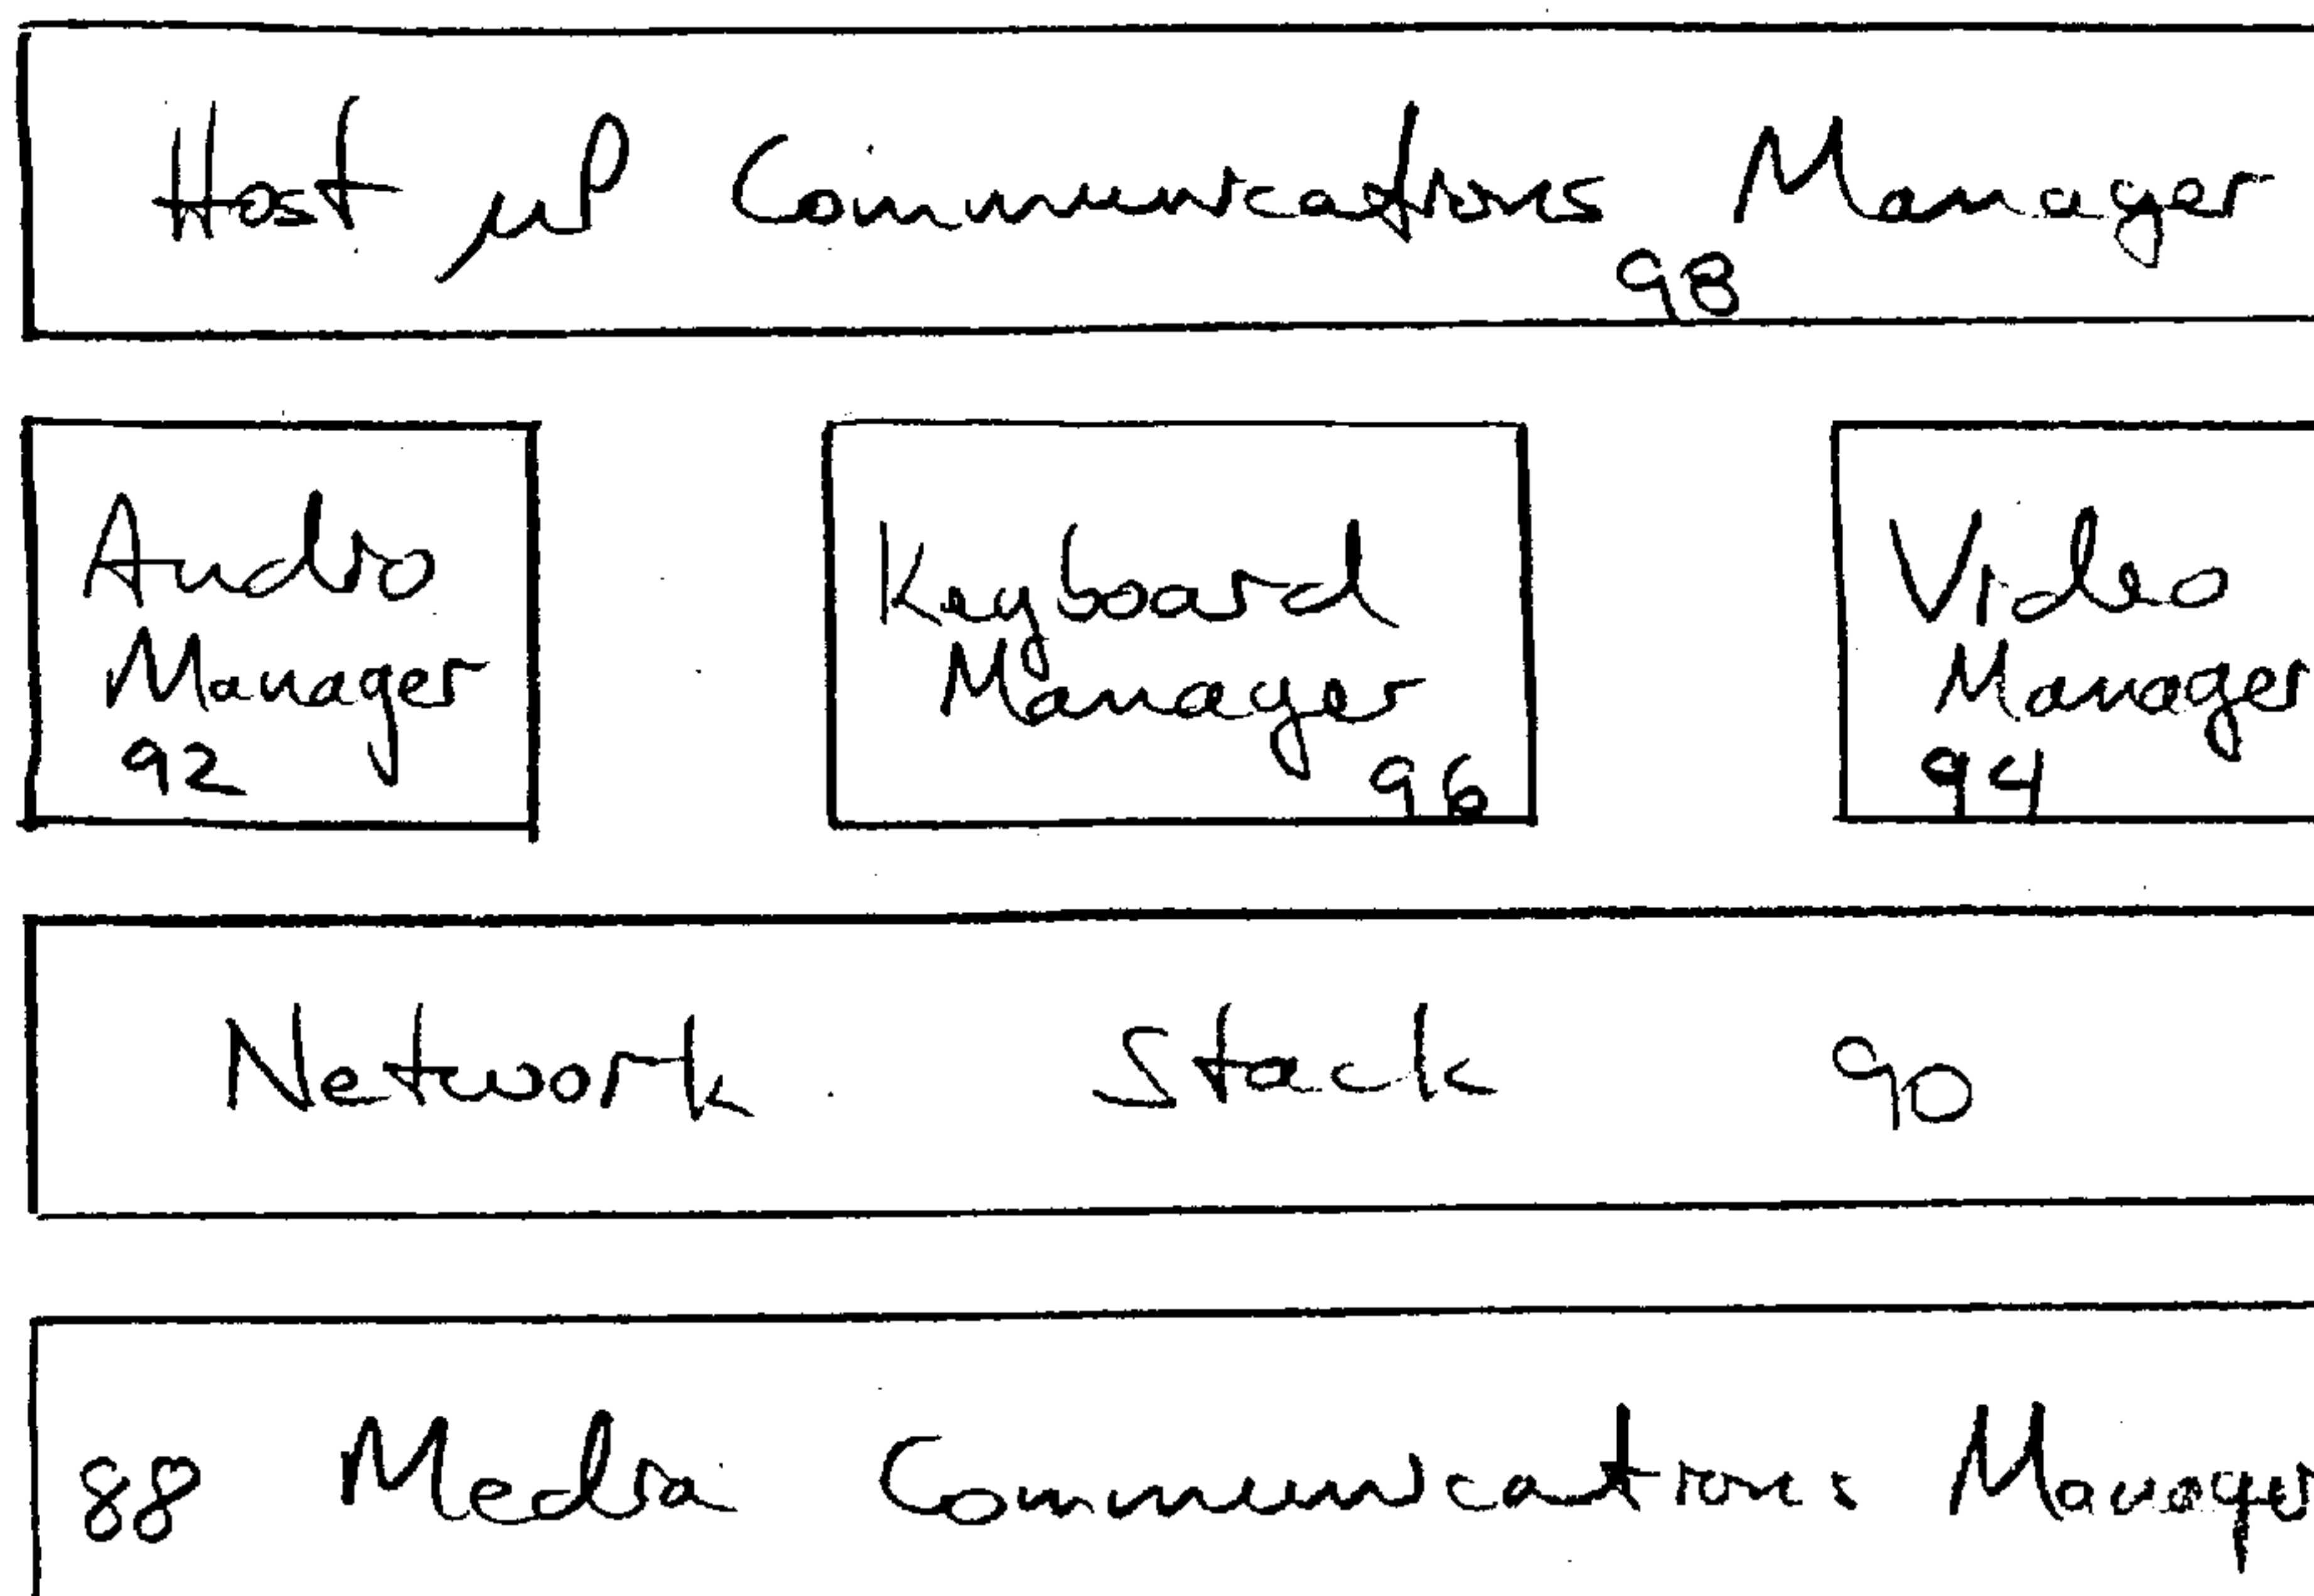 Host µP Communications Manager
98
Audio
Manager
92
Keyboard
Manager
96
Video
Manager
94
Network Stack 90
88 Media Communications Manager